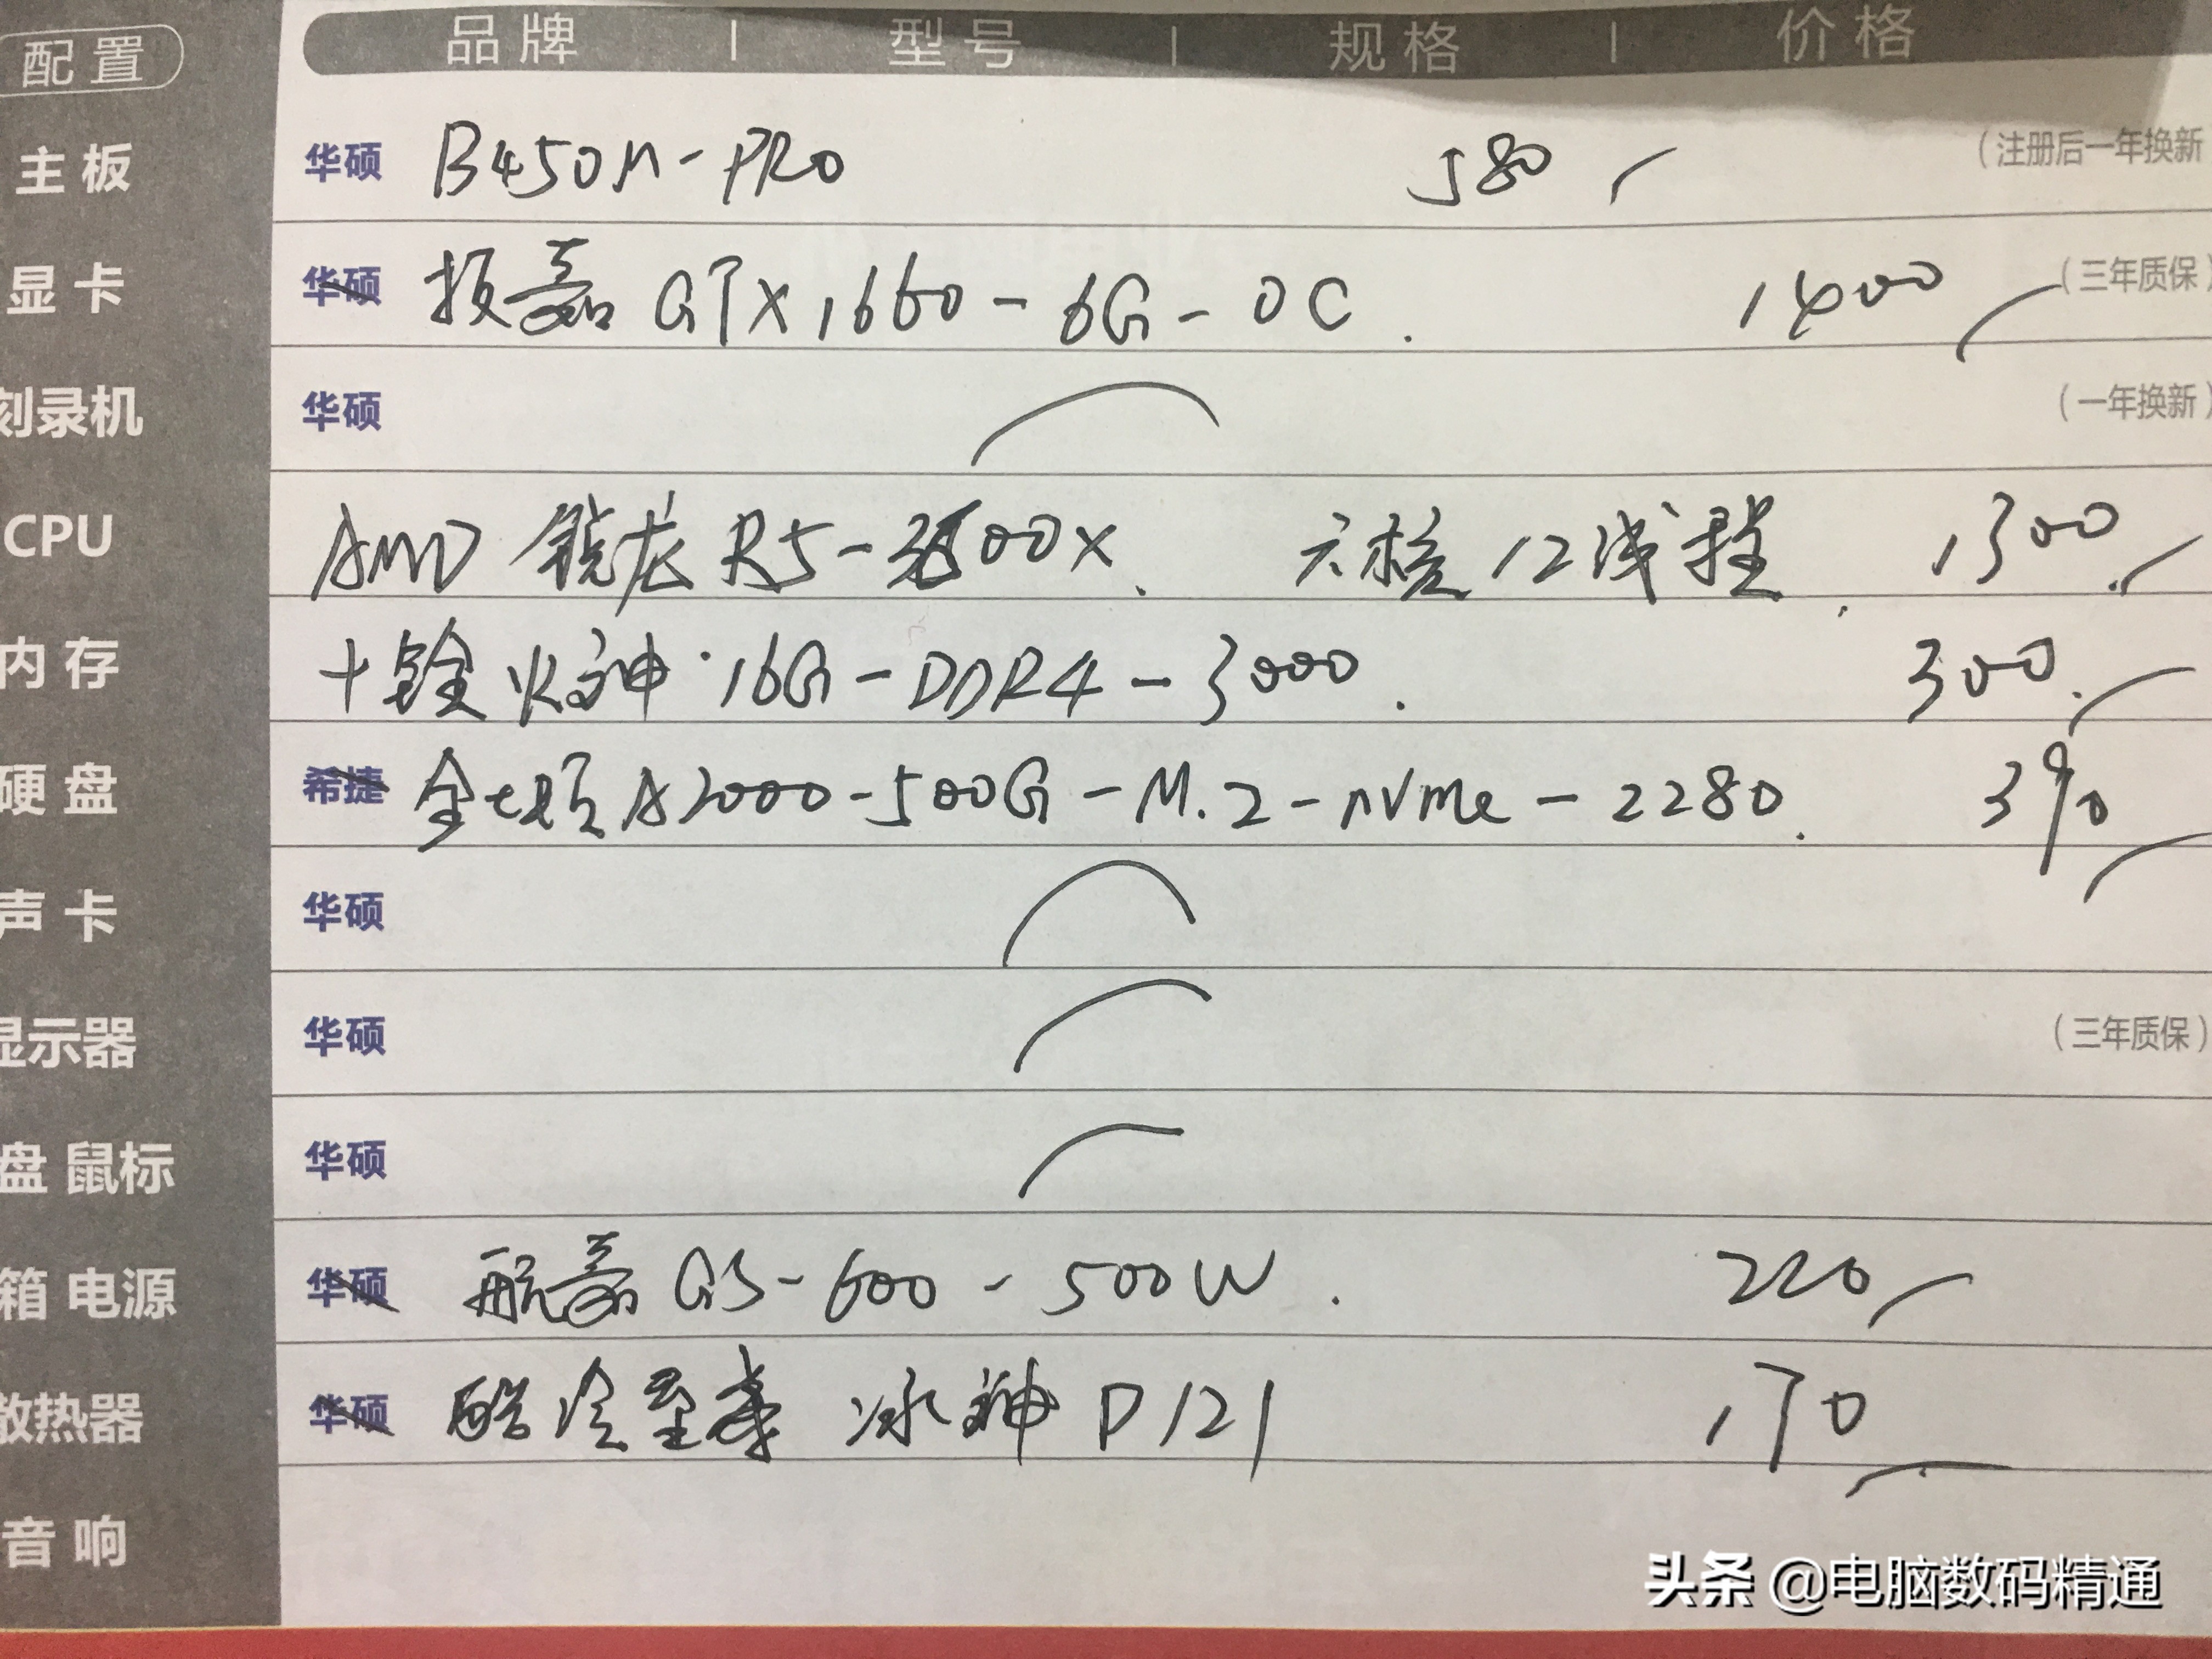 配置 品牌 | 型号 | 规格 | 价格
主板 华硕 B450M-PRO 580 (注册后一年换新
显卡 华硕 技嘉 GTX1660-6G-OC. 1400 (三年质保)
刻录机 华硕 (一年换新)
CPU AMD 锐龙 R5-3500X. 六核 12线程. 1300.
内存 十铨 火神·16G-DDR4-3000. 300.
硬盘 希捷 金士顿 A2000-500G-M.2-nVme-2280. 390
声卡 华硕
显示器 华硕 (三年质保)
盘 鼠标 华硕
箱 电源 华硕 航嘉 GS-600-500W. 220
散热器 华硕 酷冷至尊 冰神 D121 170
音响
头条 @电脑数码精通